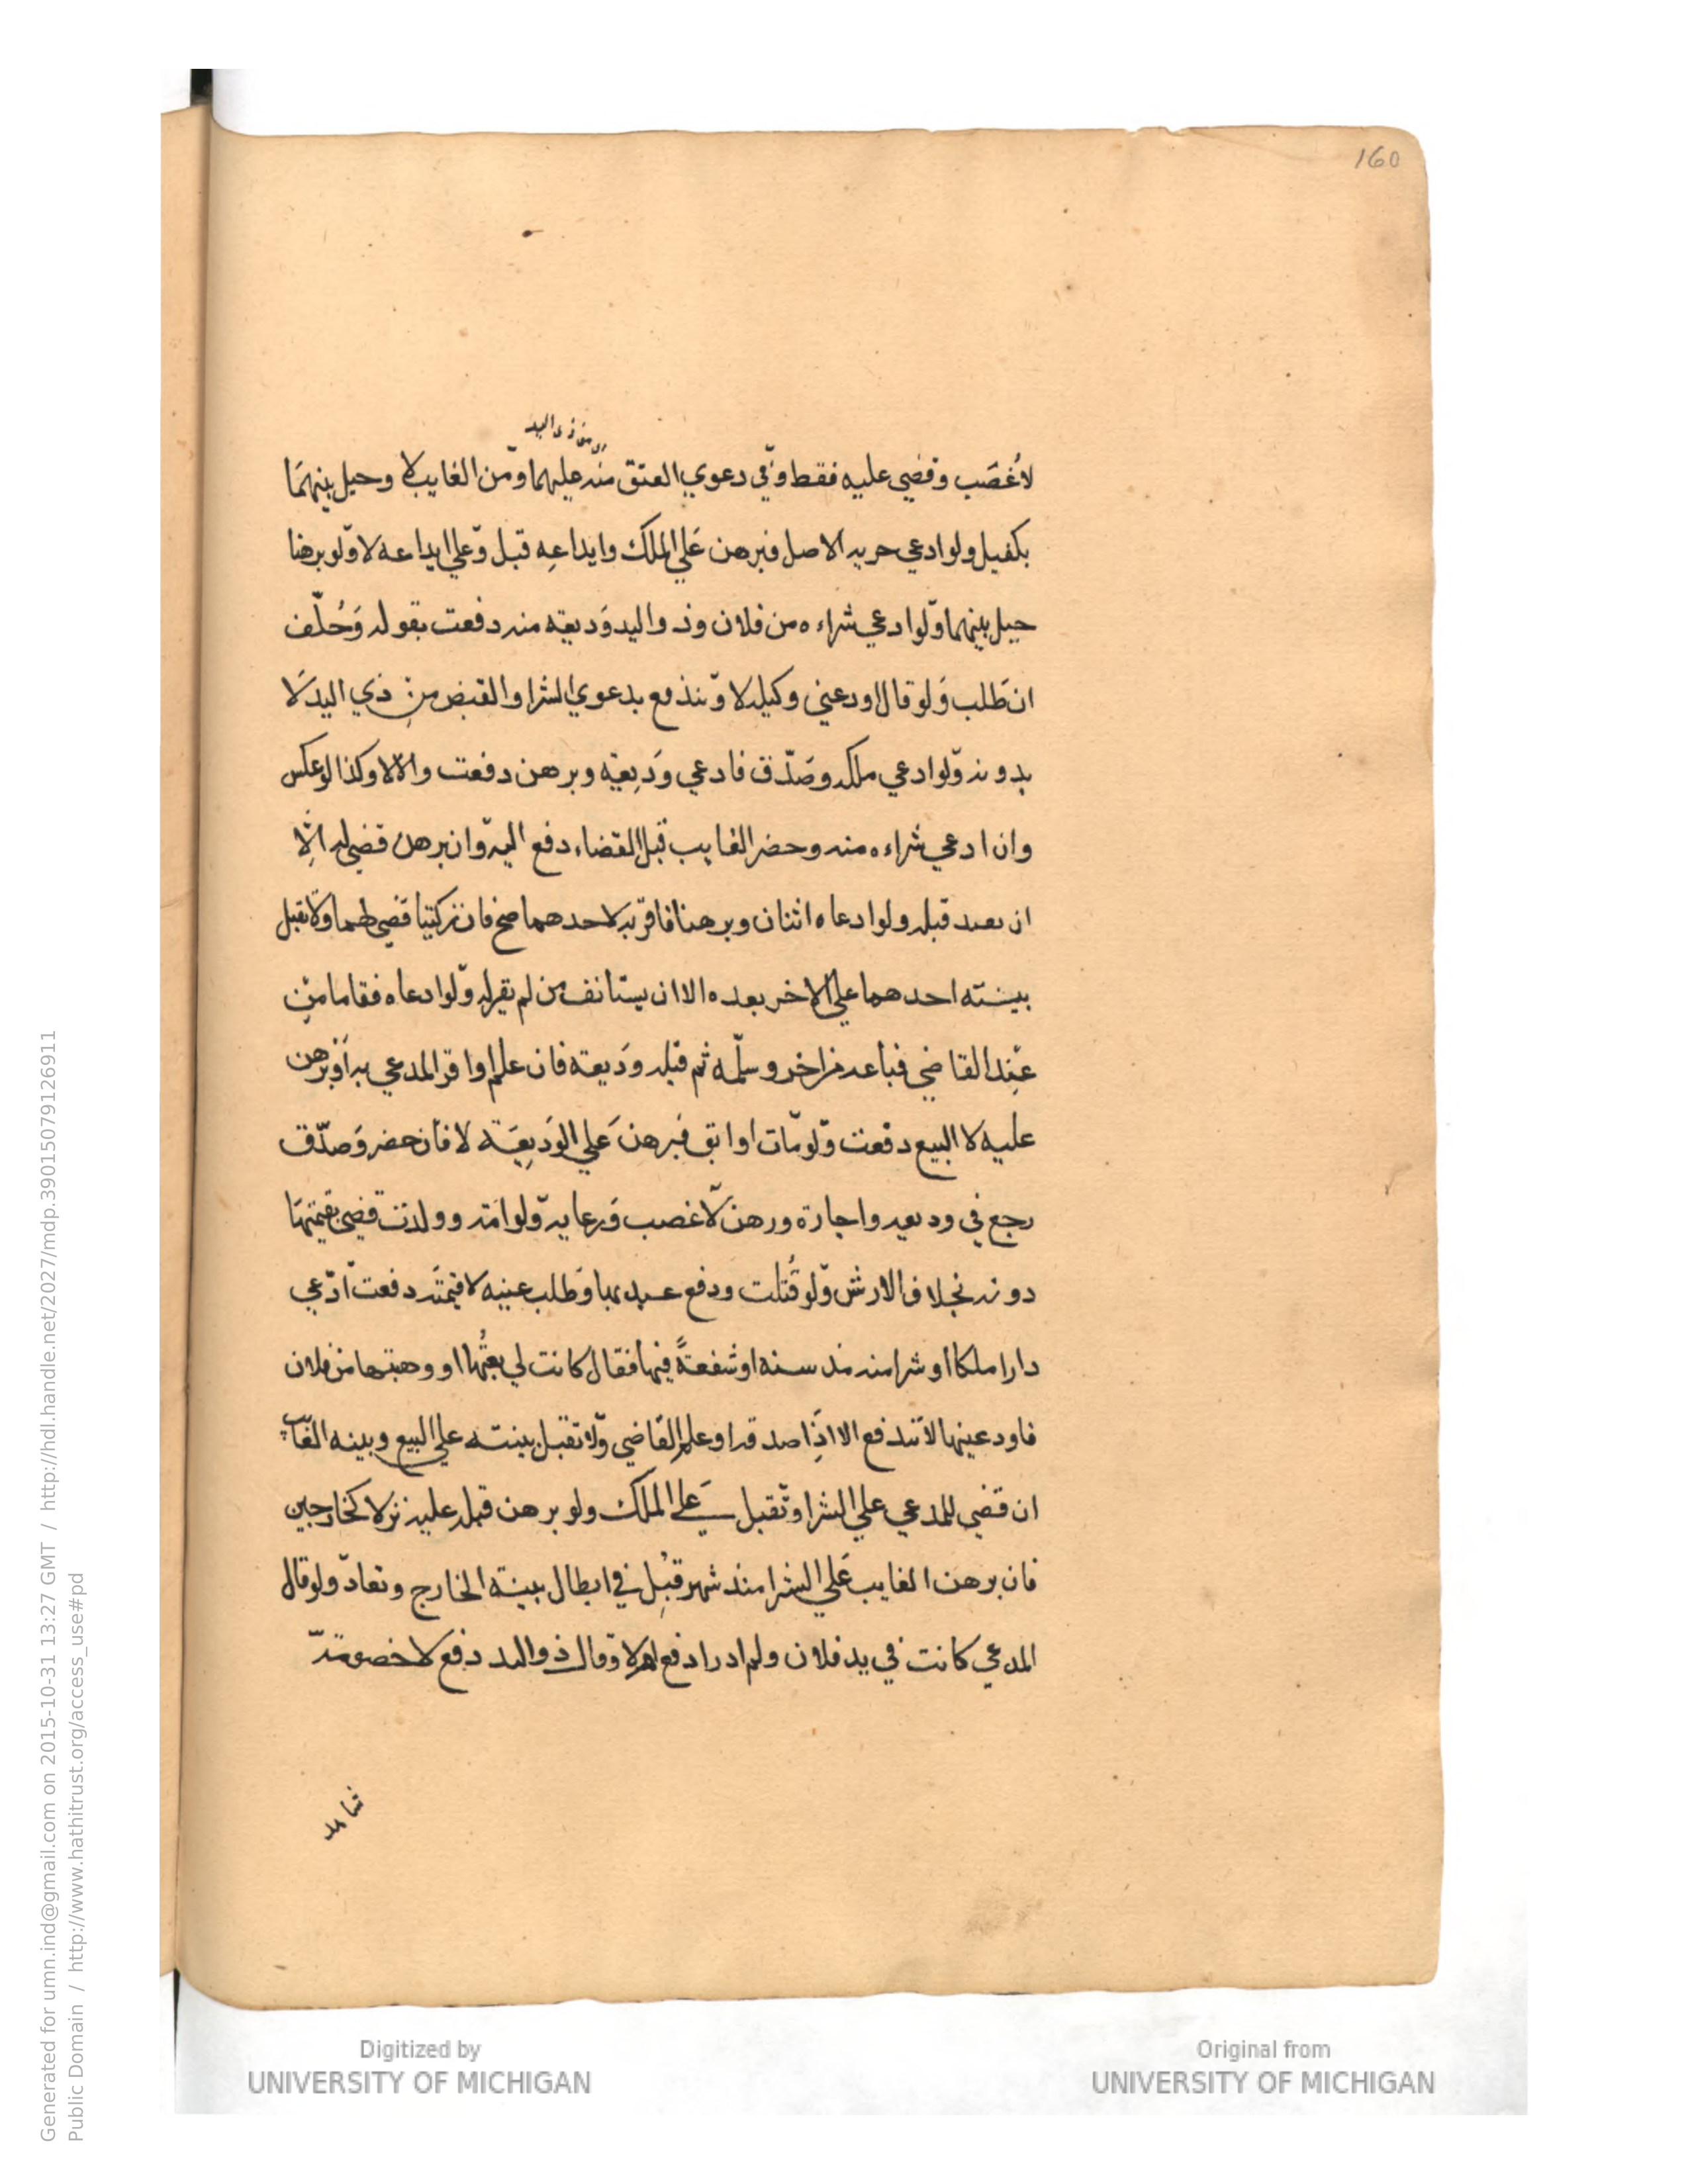 160
اي من ذي اليد
لا غصب وقضي عليه فقط وفي دعوي العتق منه عليهما ومن الغايب لا وحيل بينهما
بكفيل ولو ادعي حريه الاصل فبرهن علي الملك وايداعه قبل وعلي ايداعه لا ولو برهنا
حيل بينهما ولو ادعي شراءه من فلان وذو اليد وديعته منه دفعت بقوله وحلف
ان طلب ولو قال اودعني وكيله لا وتندفع بدعوي الشرا والقبض من ذي اليد لا
بدونه ولو ادعي ملكه وصدق فادعي وديعة وبرهن دفعت والا لا وكذا لو عكس
وان ادعي شراءه منه وحضر الغايب قبل القضاء دفع اليه وان برهن قضي له الا
ان بعبد قبله ولو ادعاه اثنان وبرهنا فاقر به لاحدهما صح فان زكيتا قضي لهما ولا تقبل
بينته احدهما علي الاخر بعده الا ان يستانف من لم يقر له ولو ادعاه فقاما من
عند القاضي فباعه من اخر وسلمه ثم قبله وديعة فان علم او اقر المدعي به او برهن
عليه لا البيع دفعت ولو مات او ابق فبرهن علي الوديعة لا فان حضر وصدق
رجع في وديعه واجارة ورهن لا غصب وعايه ولو امة وولدت قضي بقيمتها
دونه بخلاف الارش ولو قتلت ودفع عبد بها وطلب عينه لا قيمته دفعت ادعي
دارا ملكا او شرا منه منذ سنه او شفعة فيها فقال كانت لي بعتها او وهبتها من فلان
فاودعينها لا تندفع الا اذا صدقه او علم القاضي ولا تقبل بينته علي البيع وبينه الغايب
ان قضي للمدعي علي الشرا وتقبل علي الملك ولو برهن قبله عليه نزلا كخارجين
فان برهن الغايب علي الشرا منذ شهر قبل في ابطال بينة الخارج وتعاد ولو قال
المدعي كانت في يد فلان ولم ادر ادفع لهم لا وقال ذو اليد دفع لا خصومة
شاهد
Digitized by
UNIVERSITY OF MICHIGAN
Original from
UNIVERSITY OF MICHIGAN
Generated for umn.ind@gmail.com on 2015-10-31 13:27 GMT / http://hdl.handle.net/2027/mdp.39015079126911
Public Domain / http://www.hathitrust.org/access_use#pd